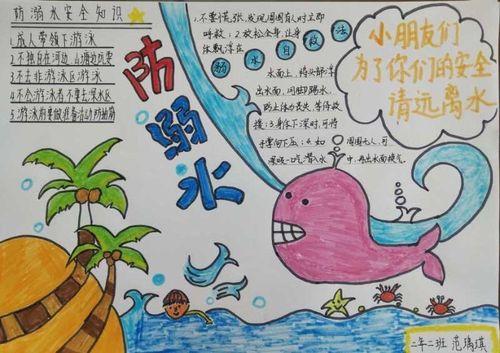 防溺水安全知识
1.成人带领下游泳
2.不独自在河边、山塘边玩耍
3.不去非游泳区游泳
4.不会游泳者不要去深水区
5.游泳前要做准备活动防抽筋
防溺水
溺水自救法
1.不要慌张,发现周围有人时立即
呼救:2放松全身,让身
体飘浮在
水面上,将头部浮
出水面,用脚踢水,
防止体力丧失,等待救
援:3.身体下沉时,可将
手掌向下压:4.如
周围无人,可
深吸一口气,潜入水
中,再出水面换气
小朋友们
为了你们的安全
请远离水
二年二班 范瑀琪